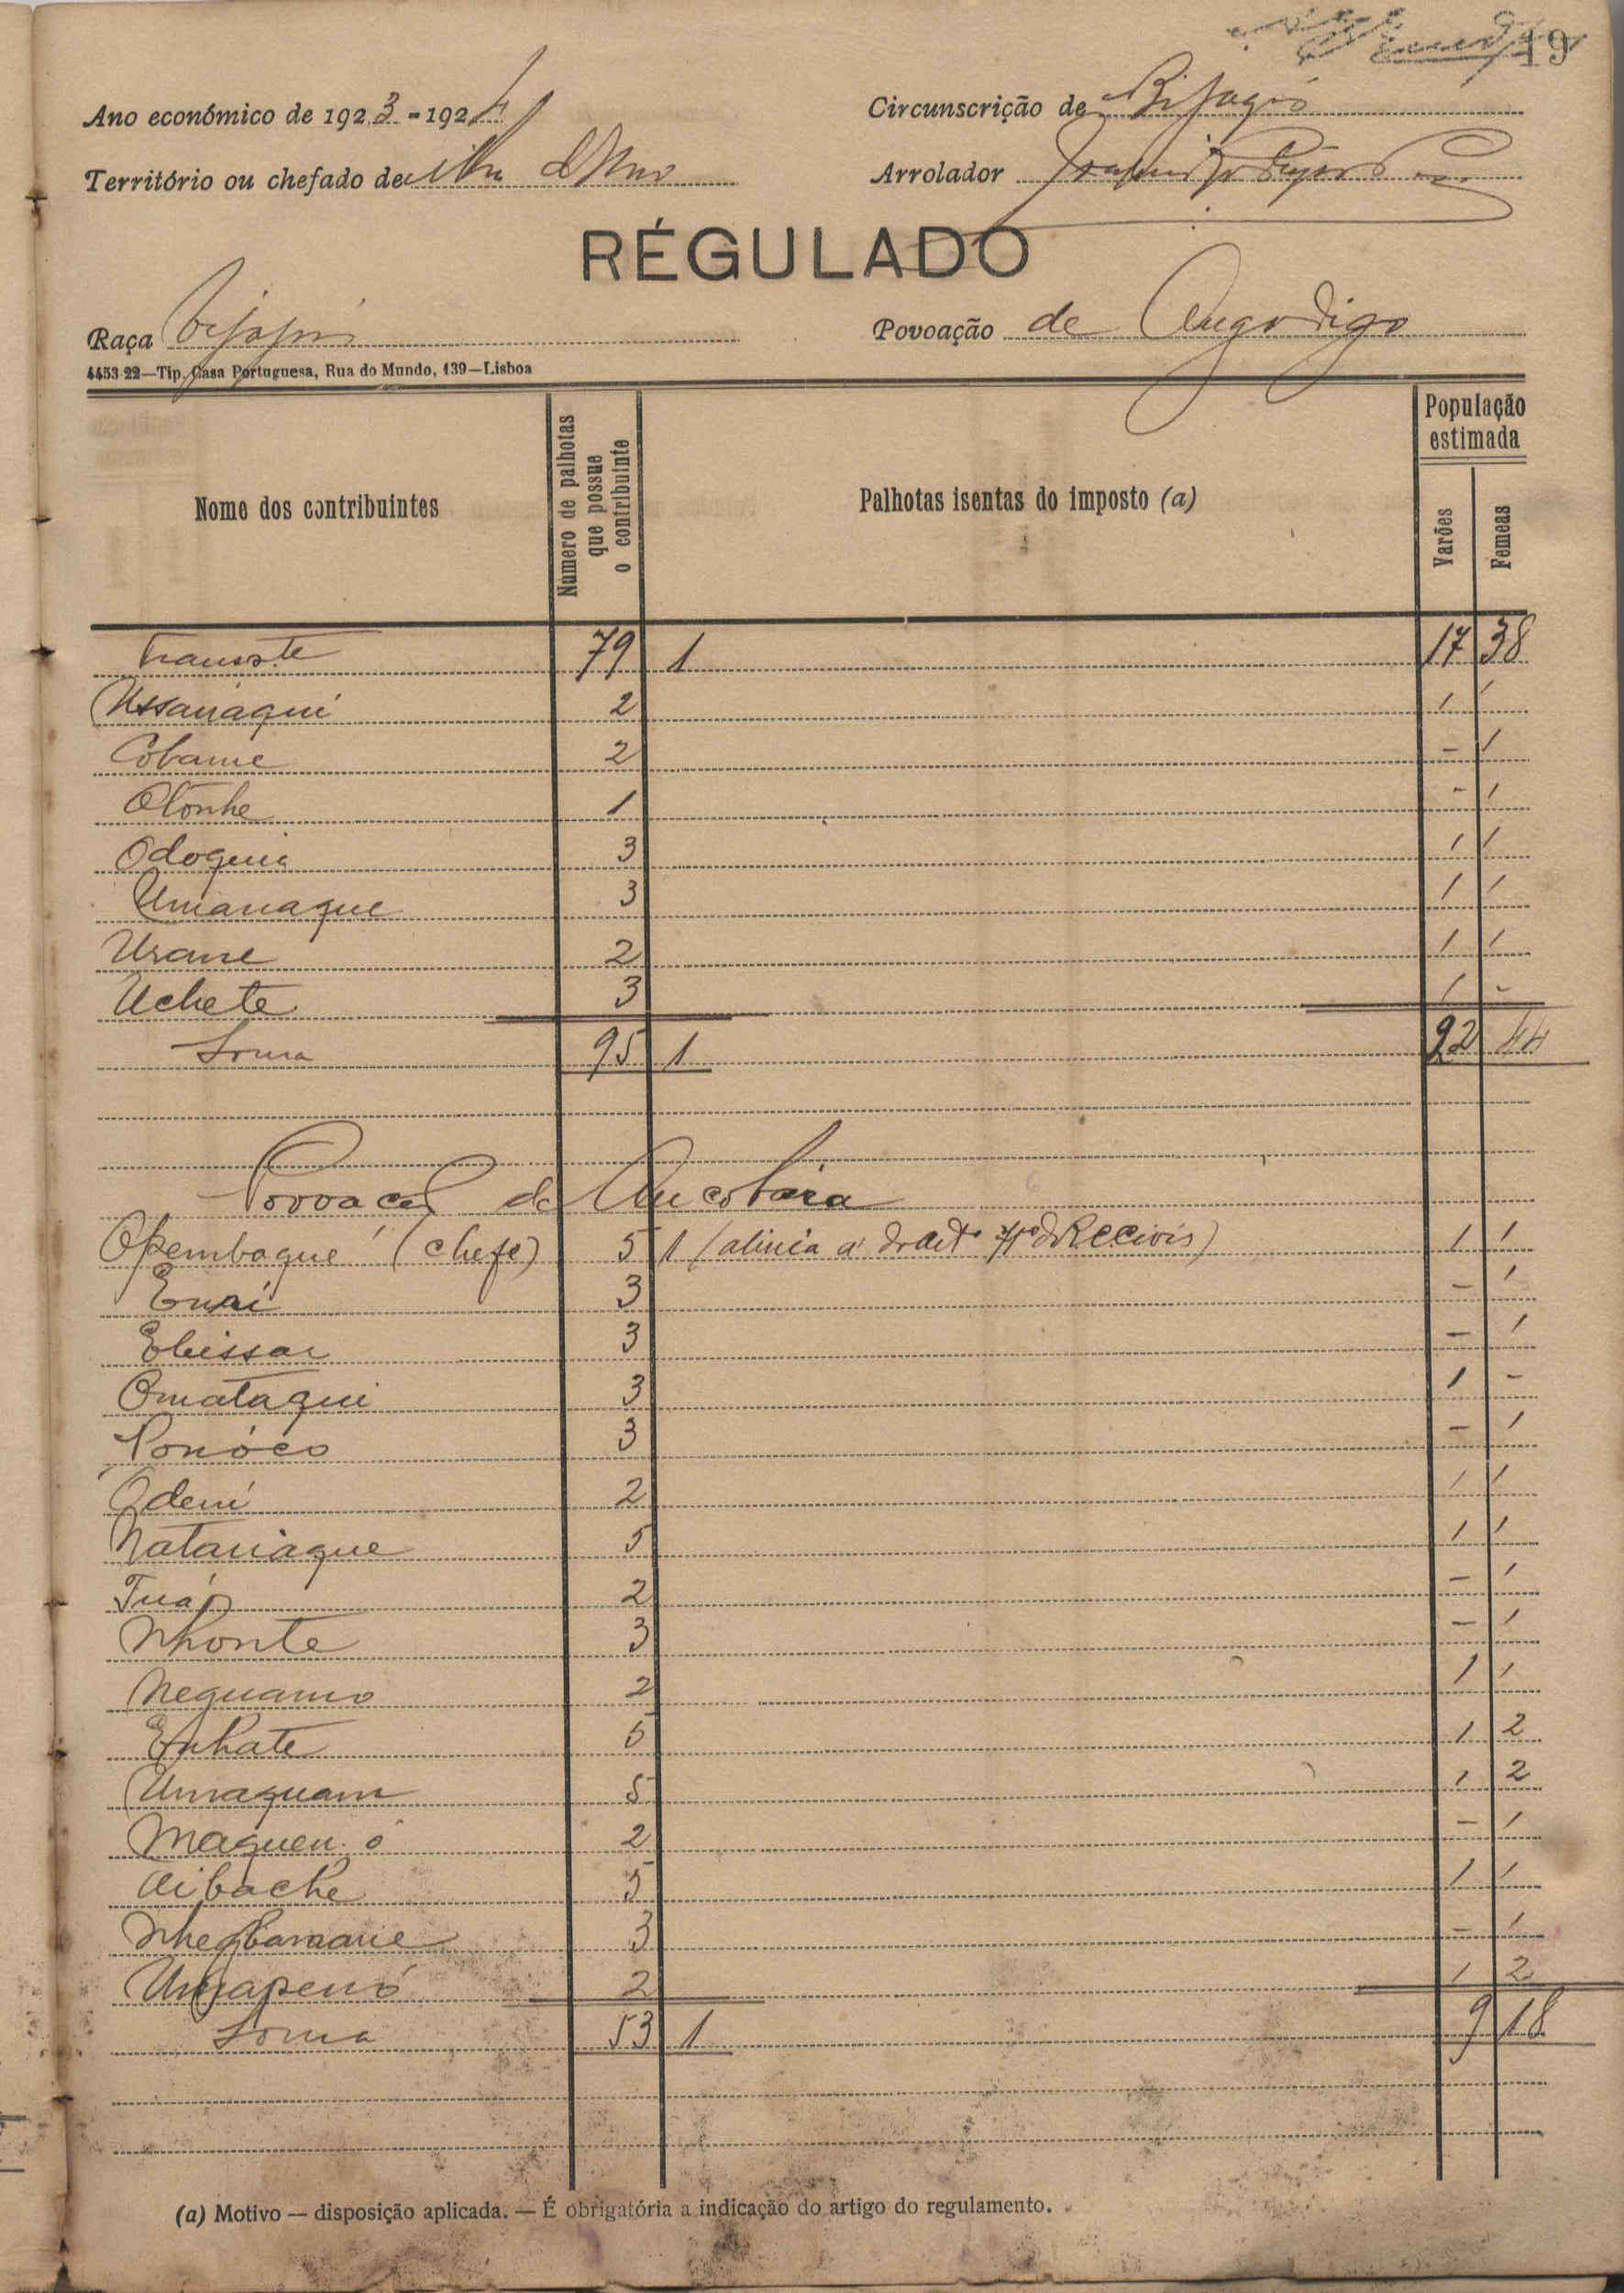 19
Ano económico de 1923-1924
Circunscrição de Bijagós
Território ou chefado de ilha
Arrolador
RÉGULADO
Raça bijagós
Povoação de Angodigo
4453-22—Tip. Casa Portuguesa, Rua do Mundo, 139—Lisboa
Nome dos contribuintes
Numero de palhotas que possue o contribuinte
Palhotas isentas do imposto (a)
População estimada
Varões
Femeas
Transpte 79 1 17 38
Ussanáqui 2 1 1
Cobame 2 - 1
Otonhe 1 - 1
Odoquia 3 1 1
Umanaque 3 1 1
Urane 2 1 1
Uchete 3 1 -
Soma 95 1 22 44
Povoação de Ancobara
Opembaque (chefe) 5 1 (alinia a 1 1
Enai 3 - 1
Ebissar 3 - 1
Omataqui 3 1 -
Ponóco 3 - 1
Odeni 2 1 1
Nataniaque 5 1 1
Tuáp 2 - 1
Nhonte 3 - 1
Nequamo 2 1 1
Enhate 5 1 2
Umaquam 5 1 2
Maquen ó 2 - 1
Aibache 5 1 1
3 - 1
Umapenó 2 1 2
Soma 53 1 9 18
(a) Motivo — disposição aplicada. — É obrigatória a indicação do artigo do regulamento.